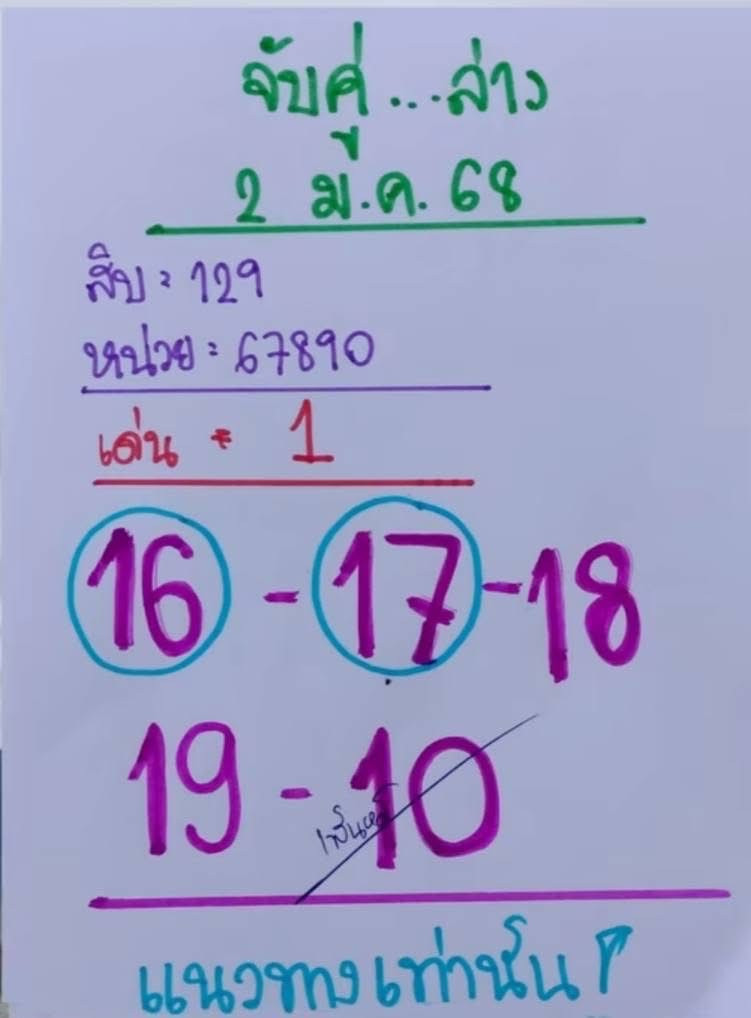 จับคู่...ล่าง
2 มี.ค. 68
สิบ = 129
หน่วย = 67890
เด่น = 1
16 - 17 - 18
19 - 10
แนวทางเท่านั้น